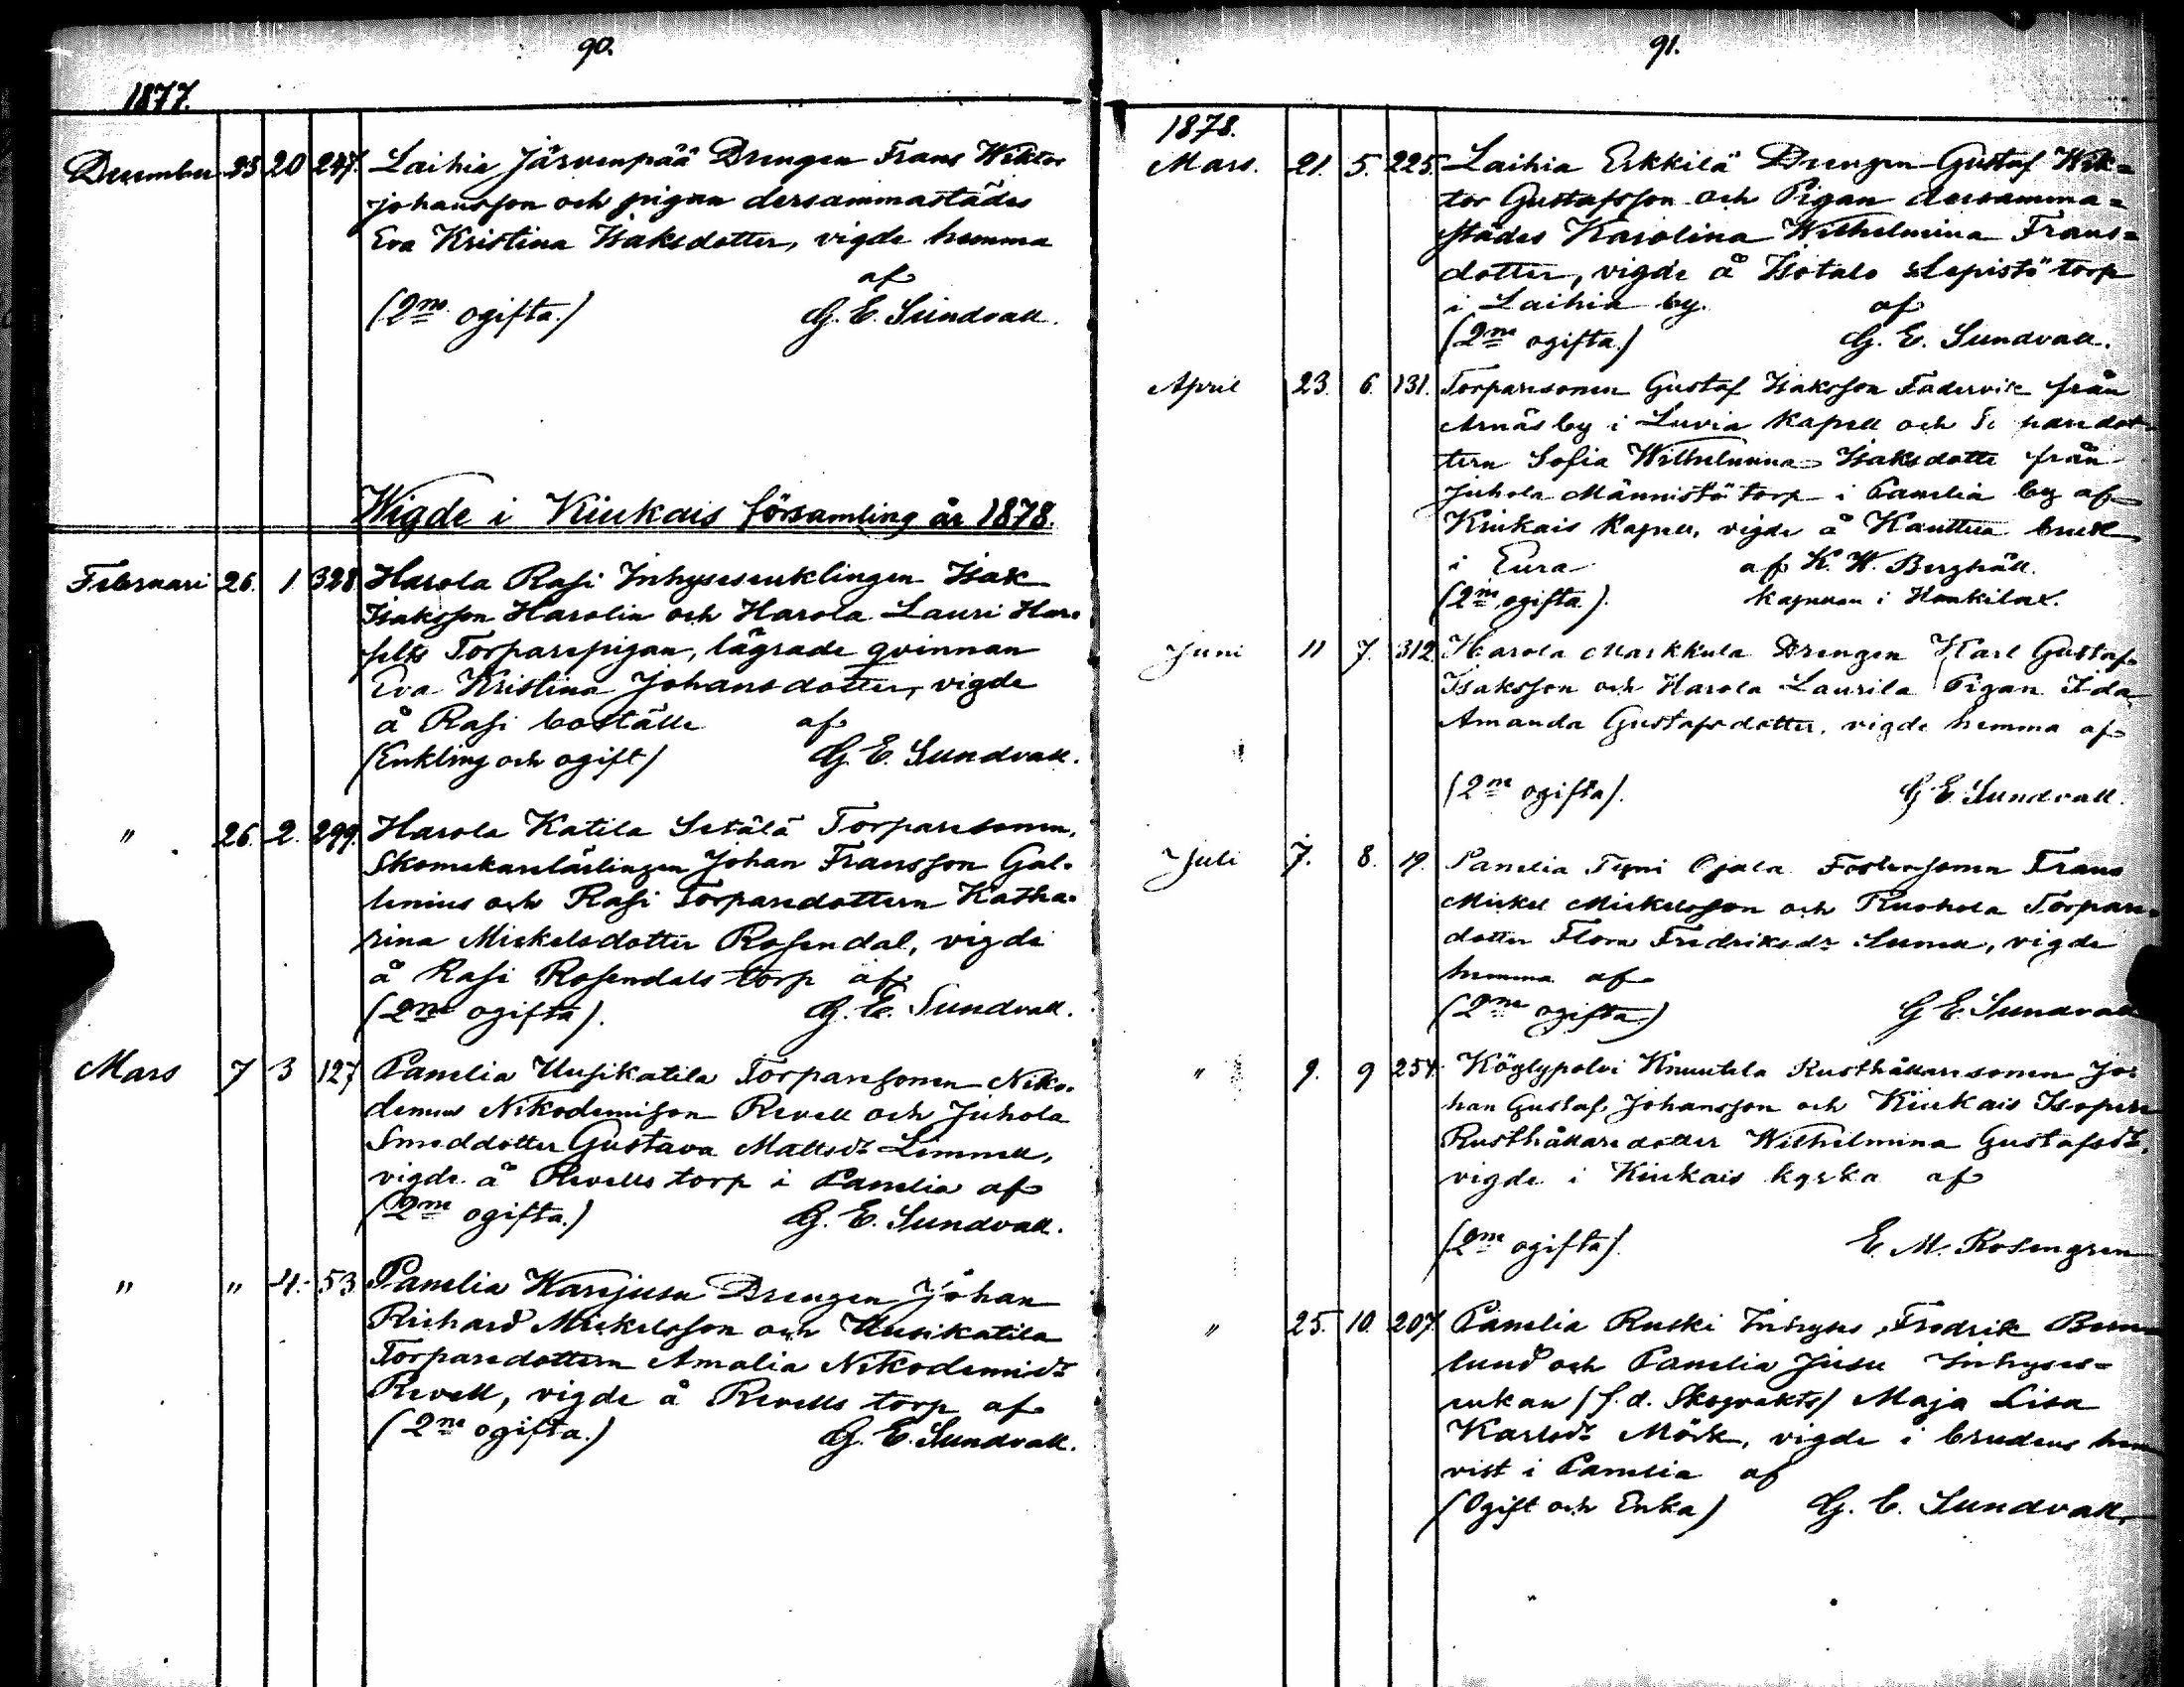 90.
1877.
December 25 20 247. Laihia Järvenpää Drengen Frans Wiktor
Johansson och pigan dersammastädes
Eva Kristina Isaksdotter, vigde hemma
af
(2ne ogifta.) G. E. Sundvall.
Wigde i Kiukais församling år 1878.
Februari 26. 1 328 Harola Rasi Inhysesenklingen Isak
Isaksson Harolin och Harola Lauri Har-
felts Torparepigan, lägrade qvinnan
Eva Kristina Johansdotter, vigde
å Rasi boställe af
(Enkling och ogift) G. E. Sundvall.
" 26. 2. 299. Harola Katila Setälä Torparesonen,
Skomakarelärlingen Johan Fransson Gal-
lenius och Rasi Torparedottern Katha-
rina Mickelsdotter Rosendal, vigde
å Rasi Rosendals torp af
(2ne ogifta). G. E. Sundvall.
Mars 7 3 127 Panelia Uusikatila Torparesonen Niko-
demus Nikodemisson Revell och Juhola
Smeddotter Gustava Mattsdr Limmell,
vigde å Revells torp i Panelia af
(2ne ogifta.) G. E. Sundvall.
" " 4. 53 Panelia Warjusu Drengen Johan
Richard Mickelsson och Uusikatila
Torparedottern Amalia Nikodemidr
Revell, vigde å Revells torp af
(2ne ogifta.) G. E. Sundvall.
91.
1878.
Mars. 21. 5. 225. Laihia Erkkilä Drengen Gustaf Wik=
tor Gustafsson och Pigan dersamma=
städes Karolina Wilhelmina Frans=
dotter, vigde å Isotalo Lepistö torp
i Laihia by. af
(2ne ogifta.) G. E. Sundvall.
April 23. 6. 131. Torparesonen Gustaf Isaksson Fadervik från
Arnäs by i Luvia Kapell och paredot-
tern Sofia Wilhelmina Isaksdotte från
Juhola Männistö torp i Panelia by af
Kiukais Kapell, vigde å Kauttua bruk
i Eura af K. W. Berghäll.
(2ne ogifta). kapellan i Honkilax.
Juni 11 7. 312. Harola Markkula Drengen Karl Gustaf
Isaksson och Harola Laurila Pigan Ida
Amanda Gustafsdotter, vigde hemma af
(2ne ogifta). G. E. Sundvall.
Juli 7. 8. 19. Panelia Tyni Ojala Fostersonen Frans
Mickel Mickelsson och Ruohola Torpare-
dotter Flora Fredriksdr Sumell, vigde
hemma af
(2ne ogifta) G. E. Sundvall
" 9. 9 254. Köylypolvi Knuutila Rusthållaresonen Jo-
han Gustaf Johansson och Kiukais Isopere
Rusthållaredotter Wilhelmina Gustafsdr,
vigde i Kiukais kyrka af
(2ne ogifta). E. M. Rosengren
" 25. 10. 207. Panelia Ruski Inhyses Fredrik
lund och Panelia Juse Inhyses=
enkan (f.d. Skogvakts) Maja Lisa
Karlsdr Mörk, vigde i brudens hem
vist i Panelia af
(Ogift och Enka) G. E. Sundvall.